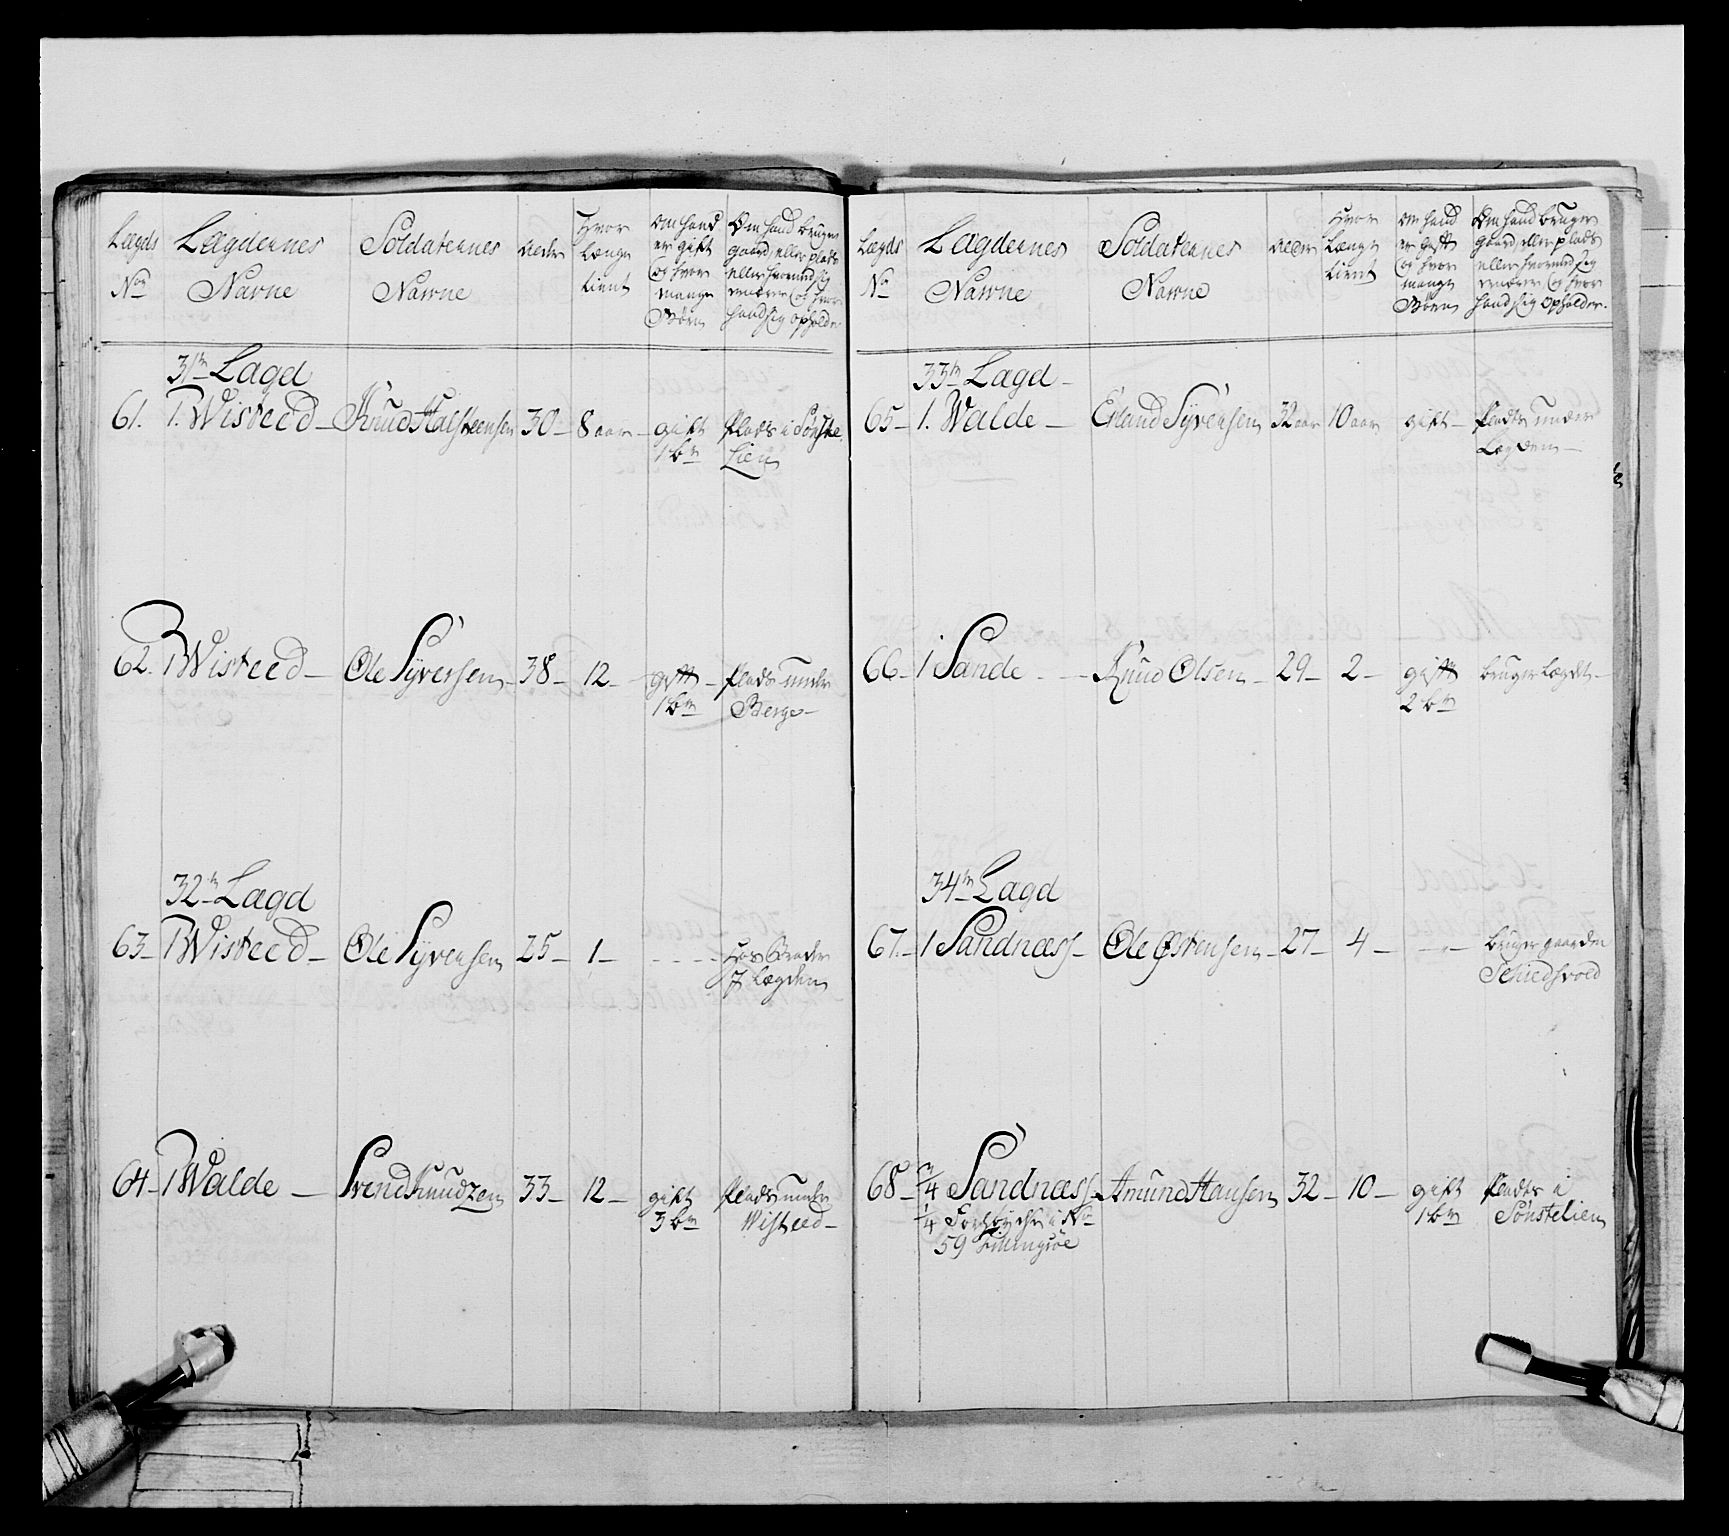 Lægds Nor
Lægdernes Navne
Soldaternes Navne
Alder
Hvor Længe tient
Om hand er gift og hvor mange Børn
Om hand bruger gaard, eller plads eller hvormed sig ernærer og hvor hand sig opholder
31te Lægd
61. 1. Wisteed – Knud Halsteensen 30 – 8 aar – gift plads i Sønste
1 bn Lien
62. 1 Wisteed – Ole Syversen – 38 – 12 – gift – plads under
1 bn Berge –
32te Lægd
63 – 1 Wisteed – Ole Syversen 25 – 1 – - - - - hos Broder
i Lægden
64 – 1 Walde – Svend Knudzen 33 – 12 – gift plads under
3 bn Wisteed –
Lægds No
Lægdernes Navne
Soldaternes Navne
Alder
Hvor Længe tient
Om hand er gift og hvor mange Børn
Om hand bruger gaard eller plads eller hvormed sig ernærer og hvor hand sig opholder.
33te Lægd –
65 – 1. Walde – Erland Syversen 32 aar 10 aar gift – plads under
Lægden –
66 – 1 Sande - – Knud Olsen – 29 – 2 – gift bruger Lægdet –
2 bn
34te Lægd
67. – 1 Sandnæss – Ole Østensen – 27 – 4 – – bruger gaarden
68 – 3/4 Sandnæss – Amund Hansen 32 – 10 – gift plads i
1/4 i No 1 bn Sønstelien
59